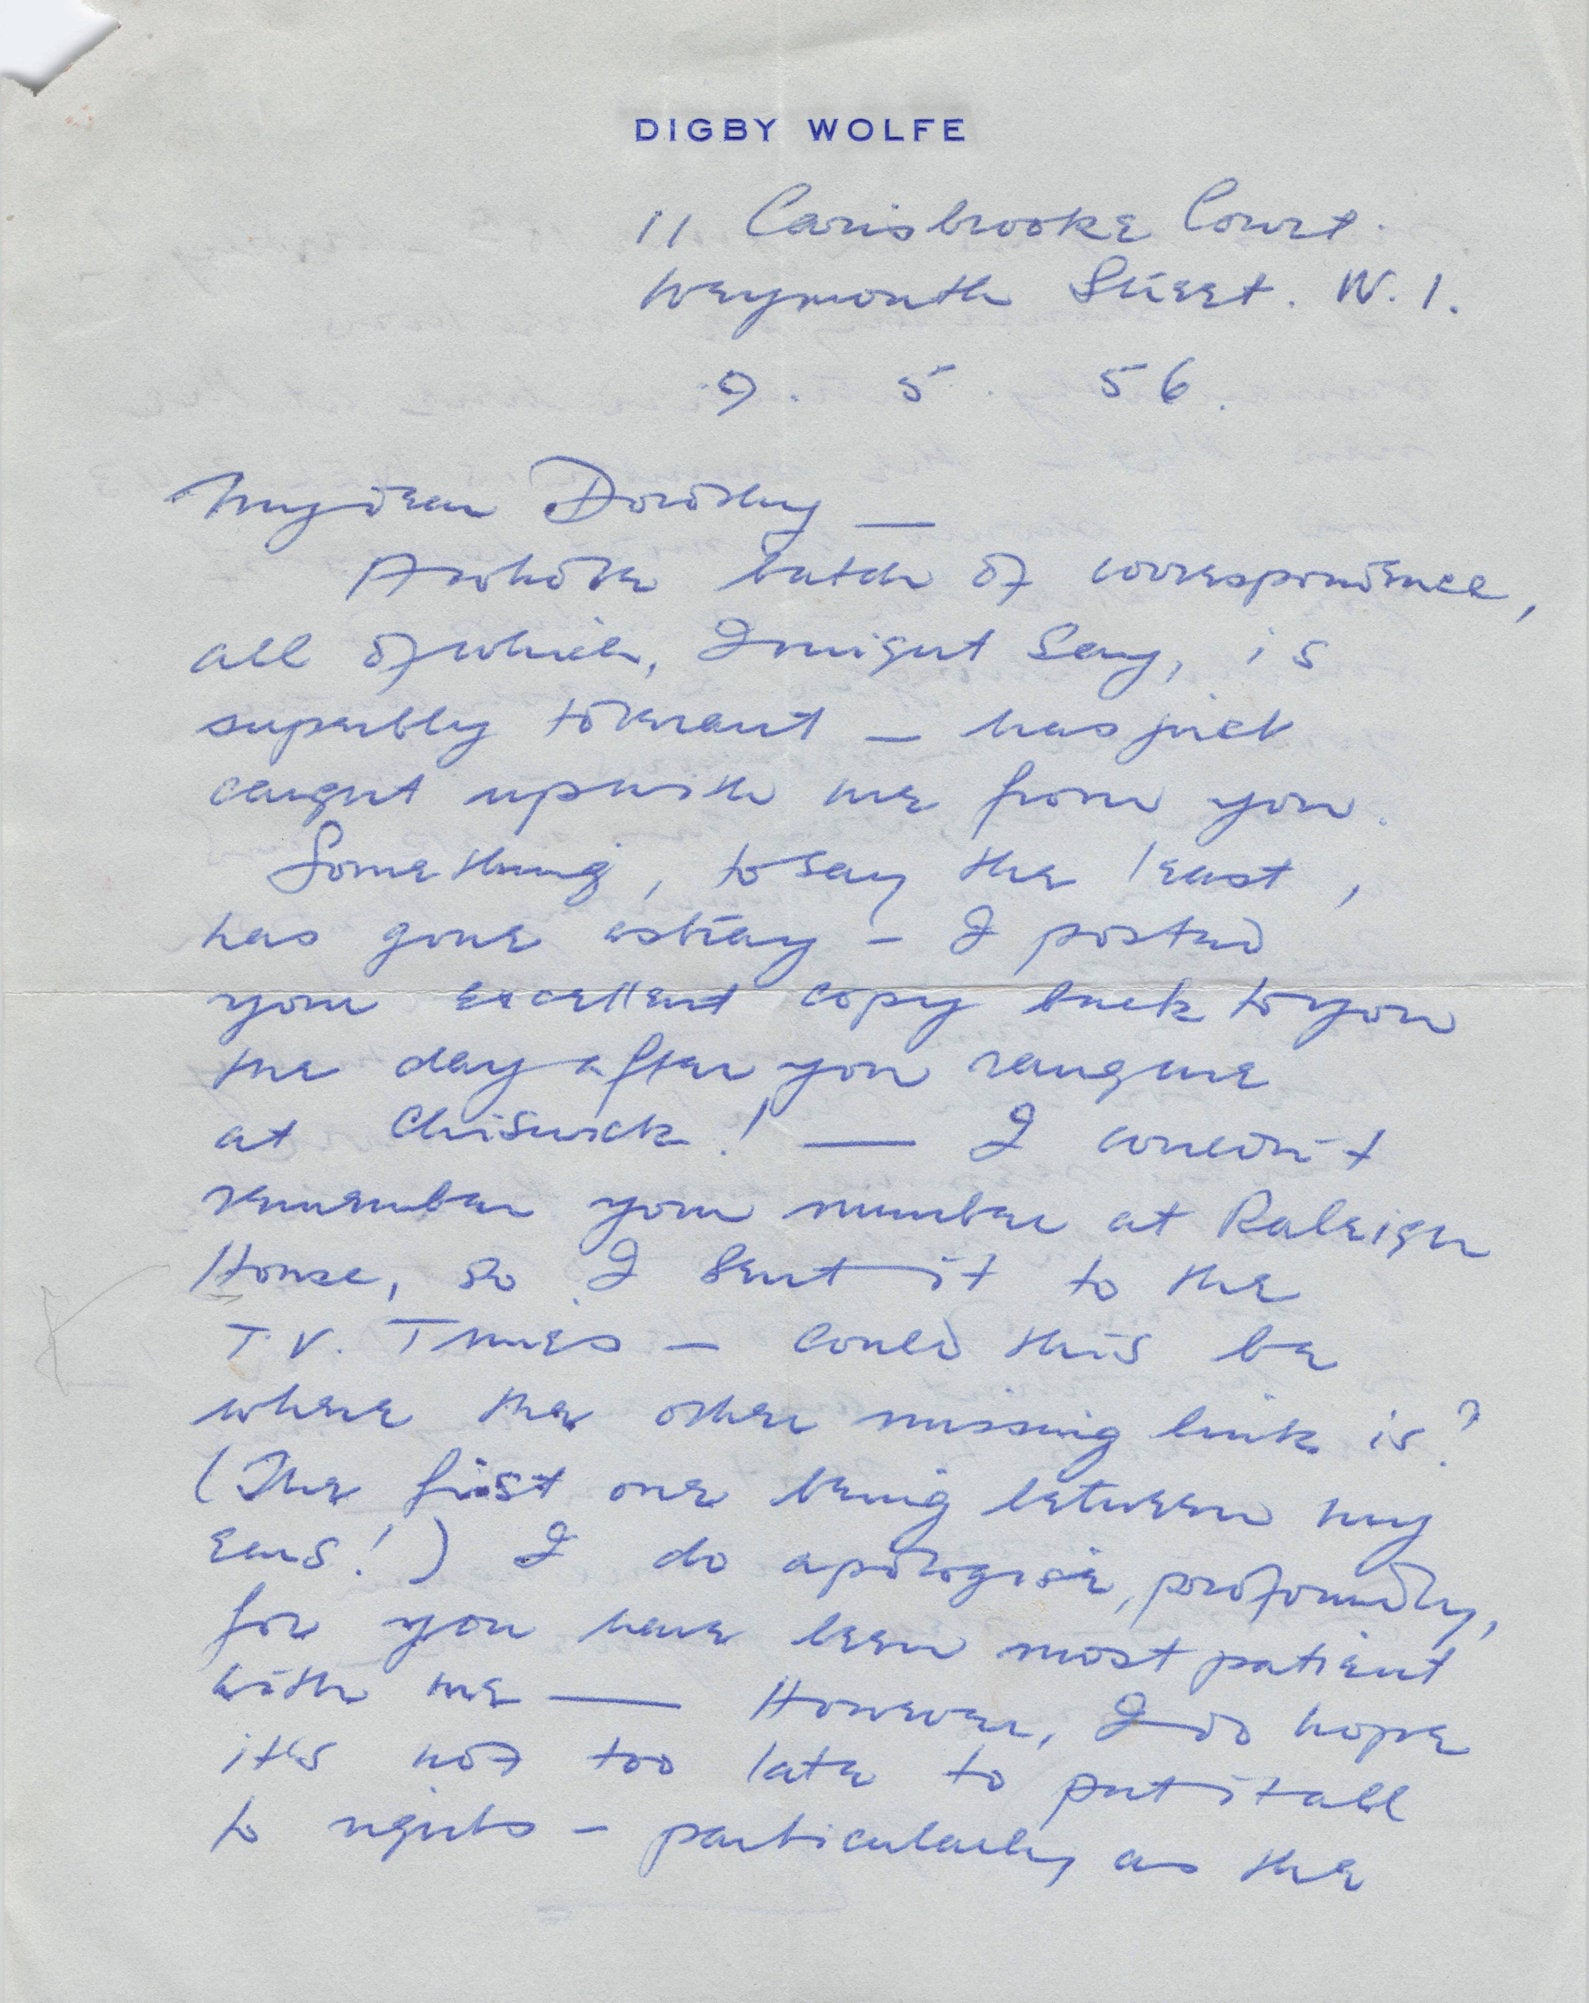 DIGBY WOLFE
11 Carisbrooke Court.
Weymouth Street. W.1.
9. 5. 56.
My dear Dorothy —
A whole batch of correspondence,
all of which, I might say, is
superbly tolerant — has just
caught up with me from you.
Something, to say the least,
has gone astray — I posted
your excellent copy back to you
the day after you rang me
at Chiswick! — I couldn't
remember your number at Raleigh
House, so I sent it to the
T.V. Times — could this be
where the other missing link is?
(The first one being between my
ears!) I do apologise, profoundly,
for you have been most patient
with me — However, I do hope
it's not too late to put it all
to rights — particularly as the